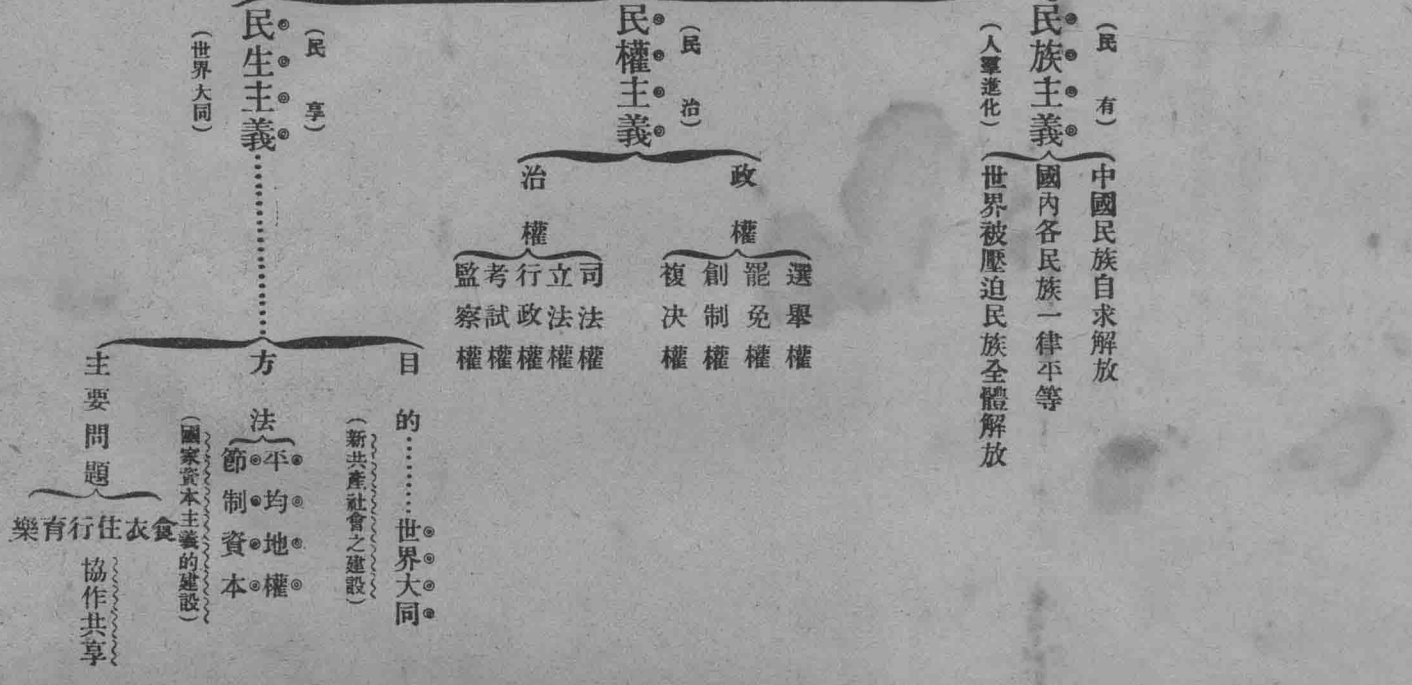 （民有）
民族主義
（人羣進化）
中國民族自求解放
國內各民族一律平等
世界被壓迫民族全體解放
（民治）
民權主義
政權
選舉權
罷免權
創制權
複決權
治權
司法權
立法權
行政權
考試權
監察權
（民享）
民生主義
（世界大同）
目的
世界大同
（新共產社會之建設）
方法
平均地權
節制資本
（國家資本主義的建設）
主要問題
食衣住行育樂
協作共享